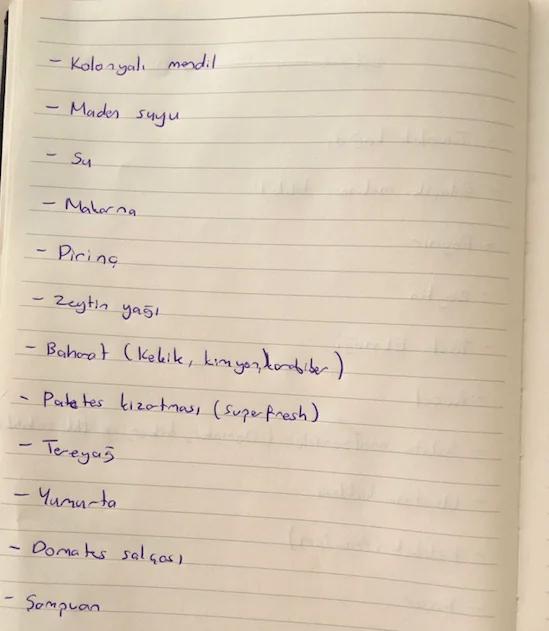 - Kolonyalı mendil
- Maden suyu
- Su
- Makarna
- Pirinç
- Zeytin yağı
- Baharat (Kekik, kimyon, karabiber)
- Patates kızatması (superfresh)
- Tereyağ
- Yumurta
- Domates salçası
- Şampuan